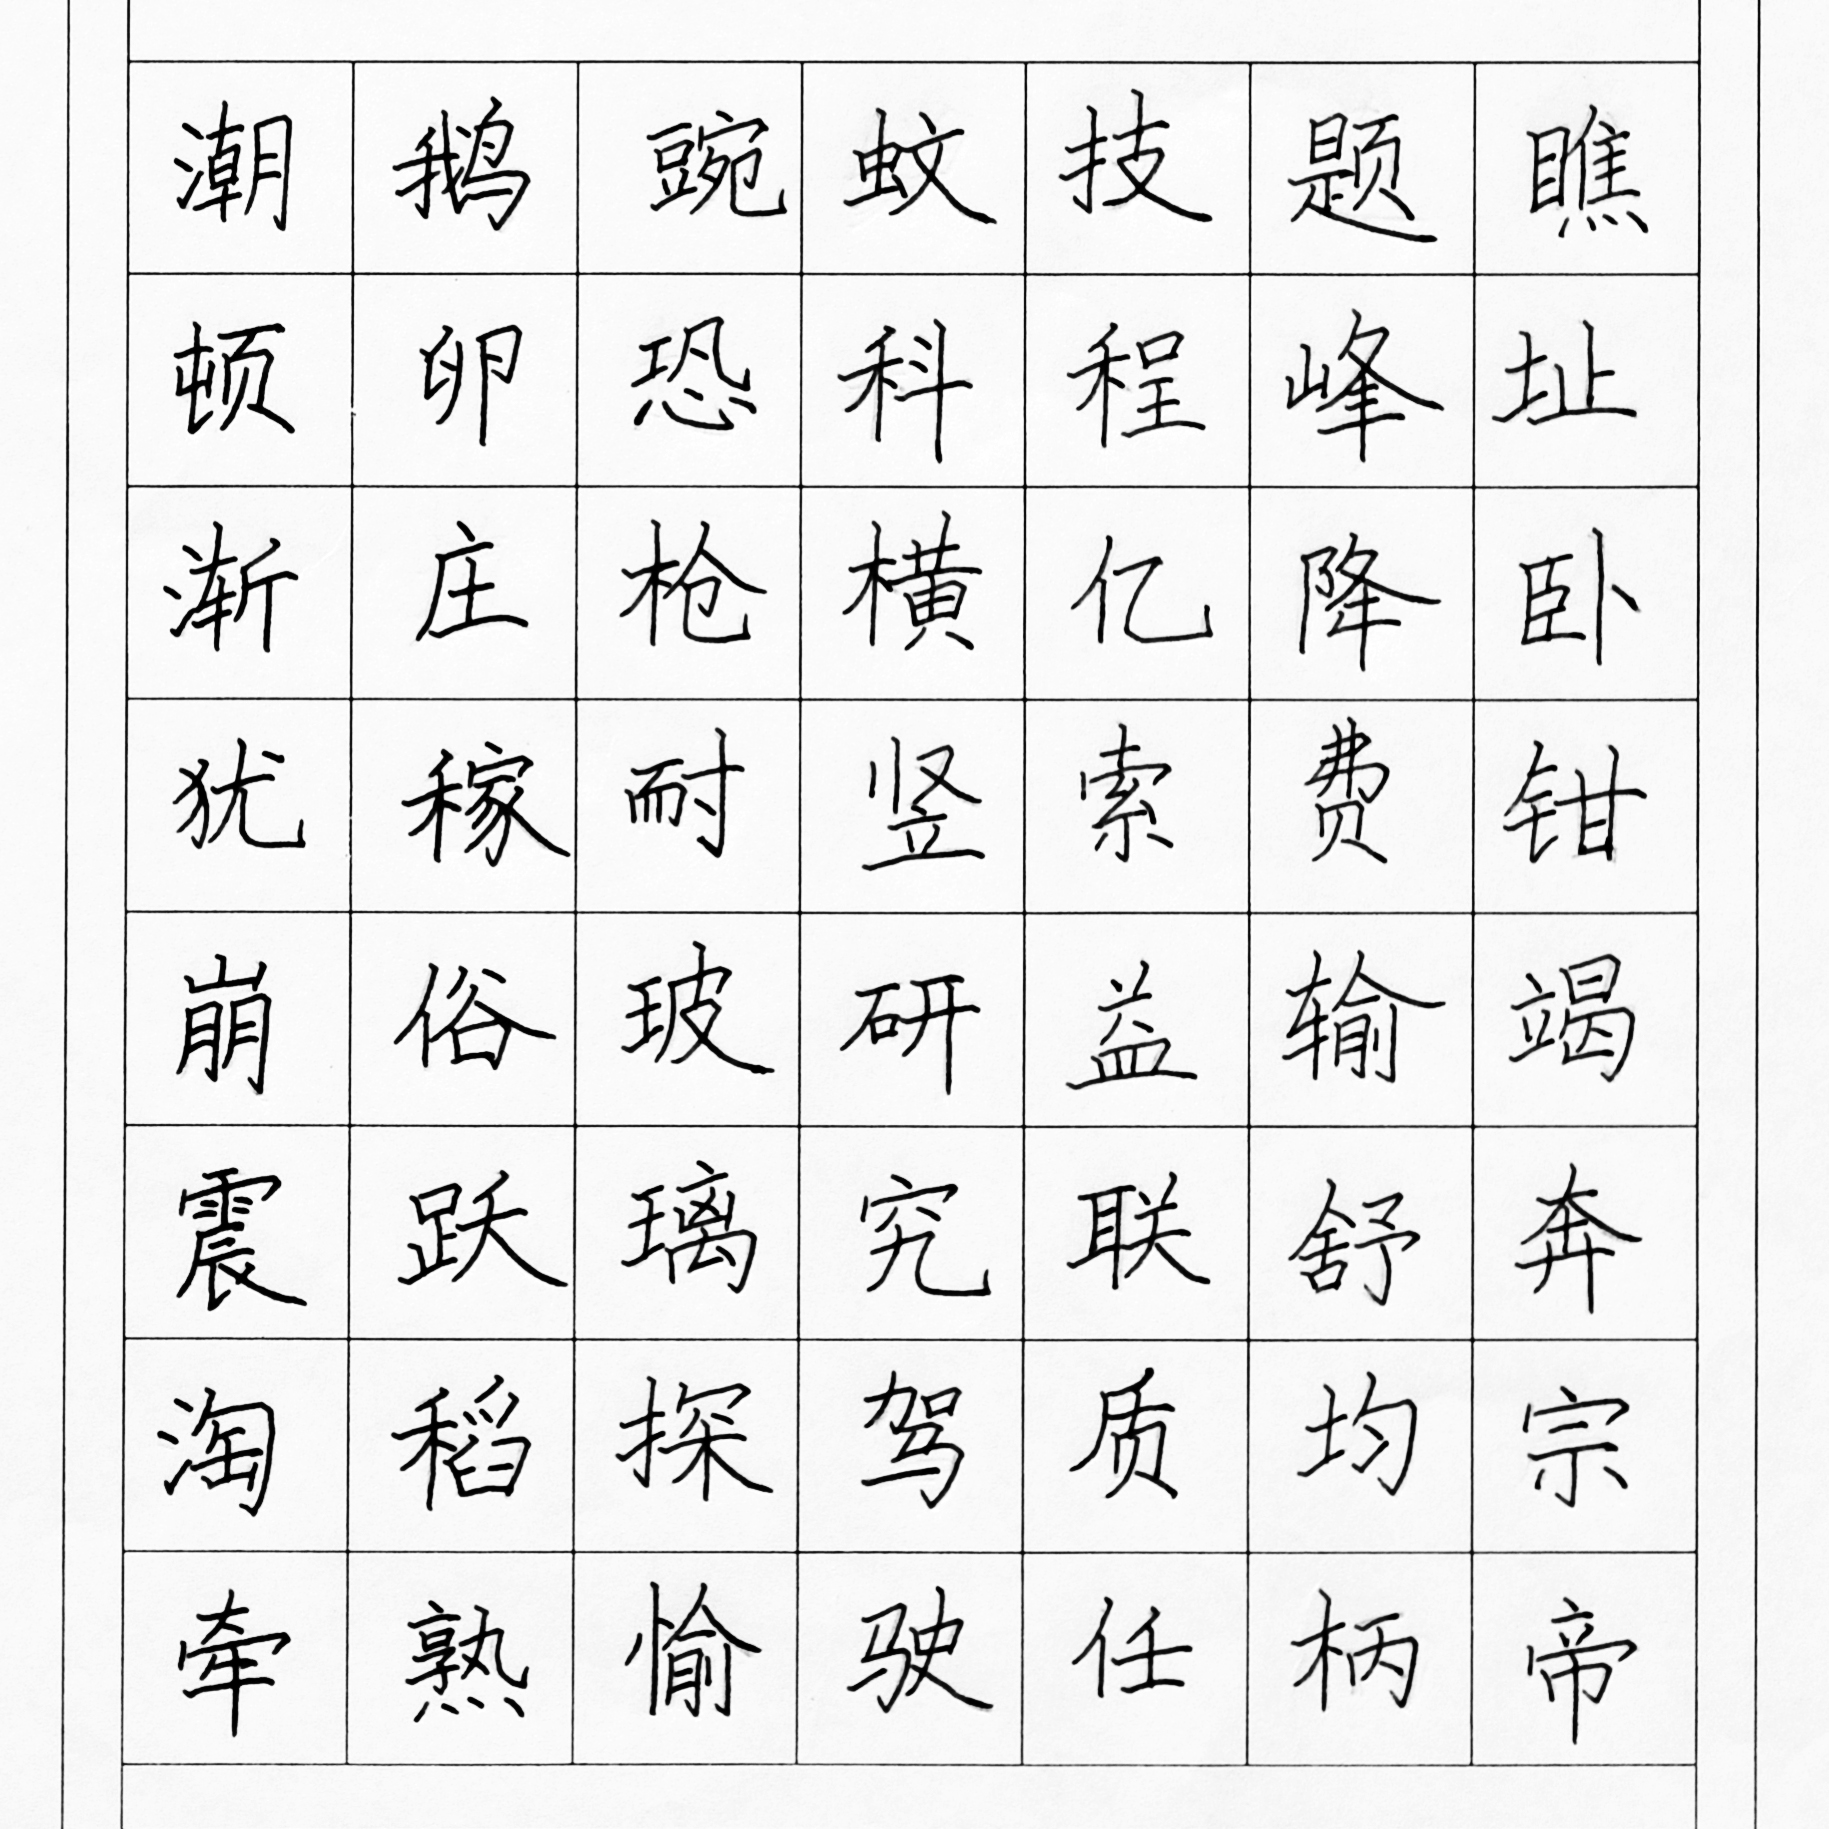 潮鹅豌蚊技题瞧
顿卵恐科程峰址
渐庄枪横亿降卧
犹稼耐竖索费钳
崩俗玻研益输竭
震跃璃究联舒奔
淘稻探驾质均宗
牵熟愉驶任柄帝